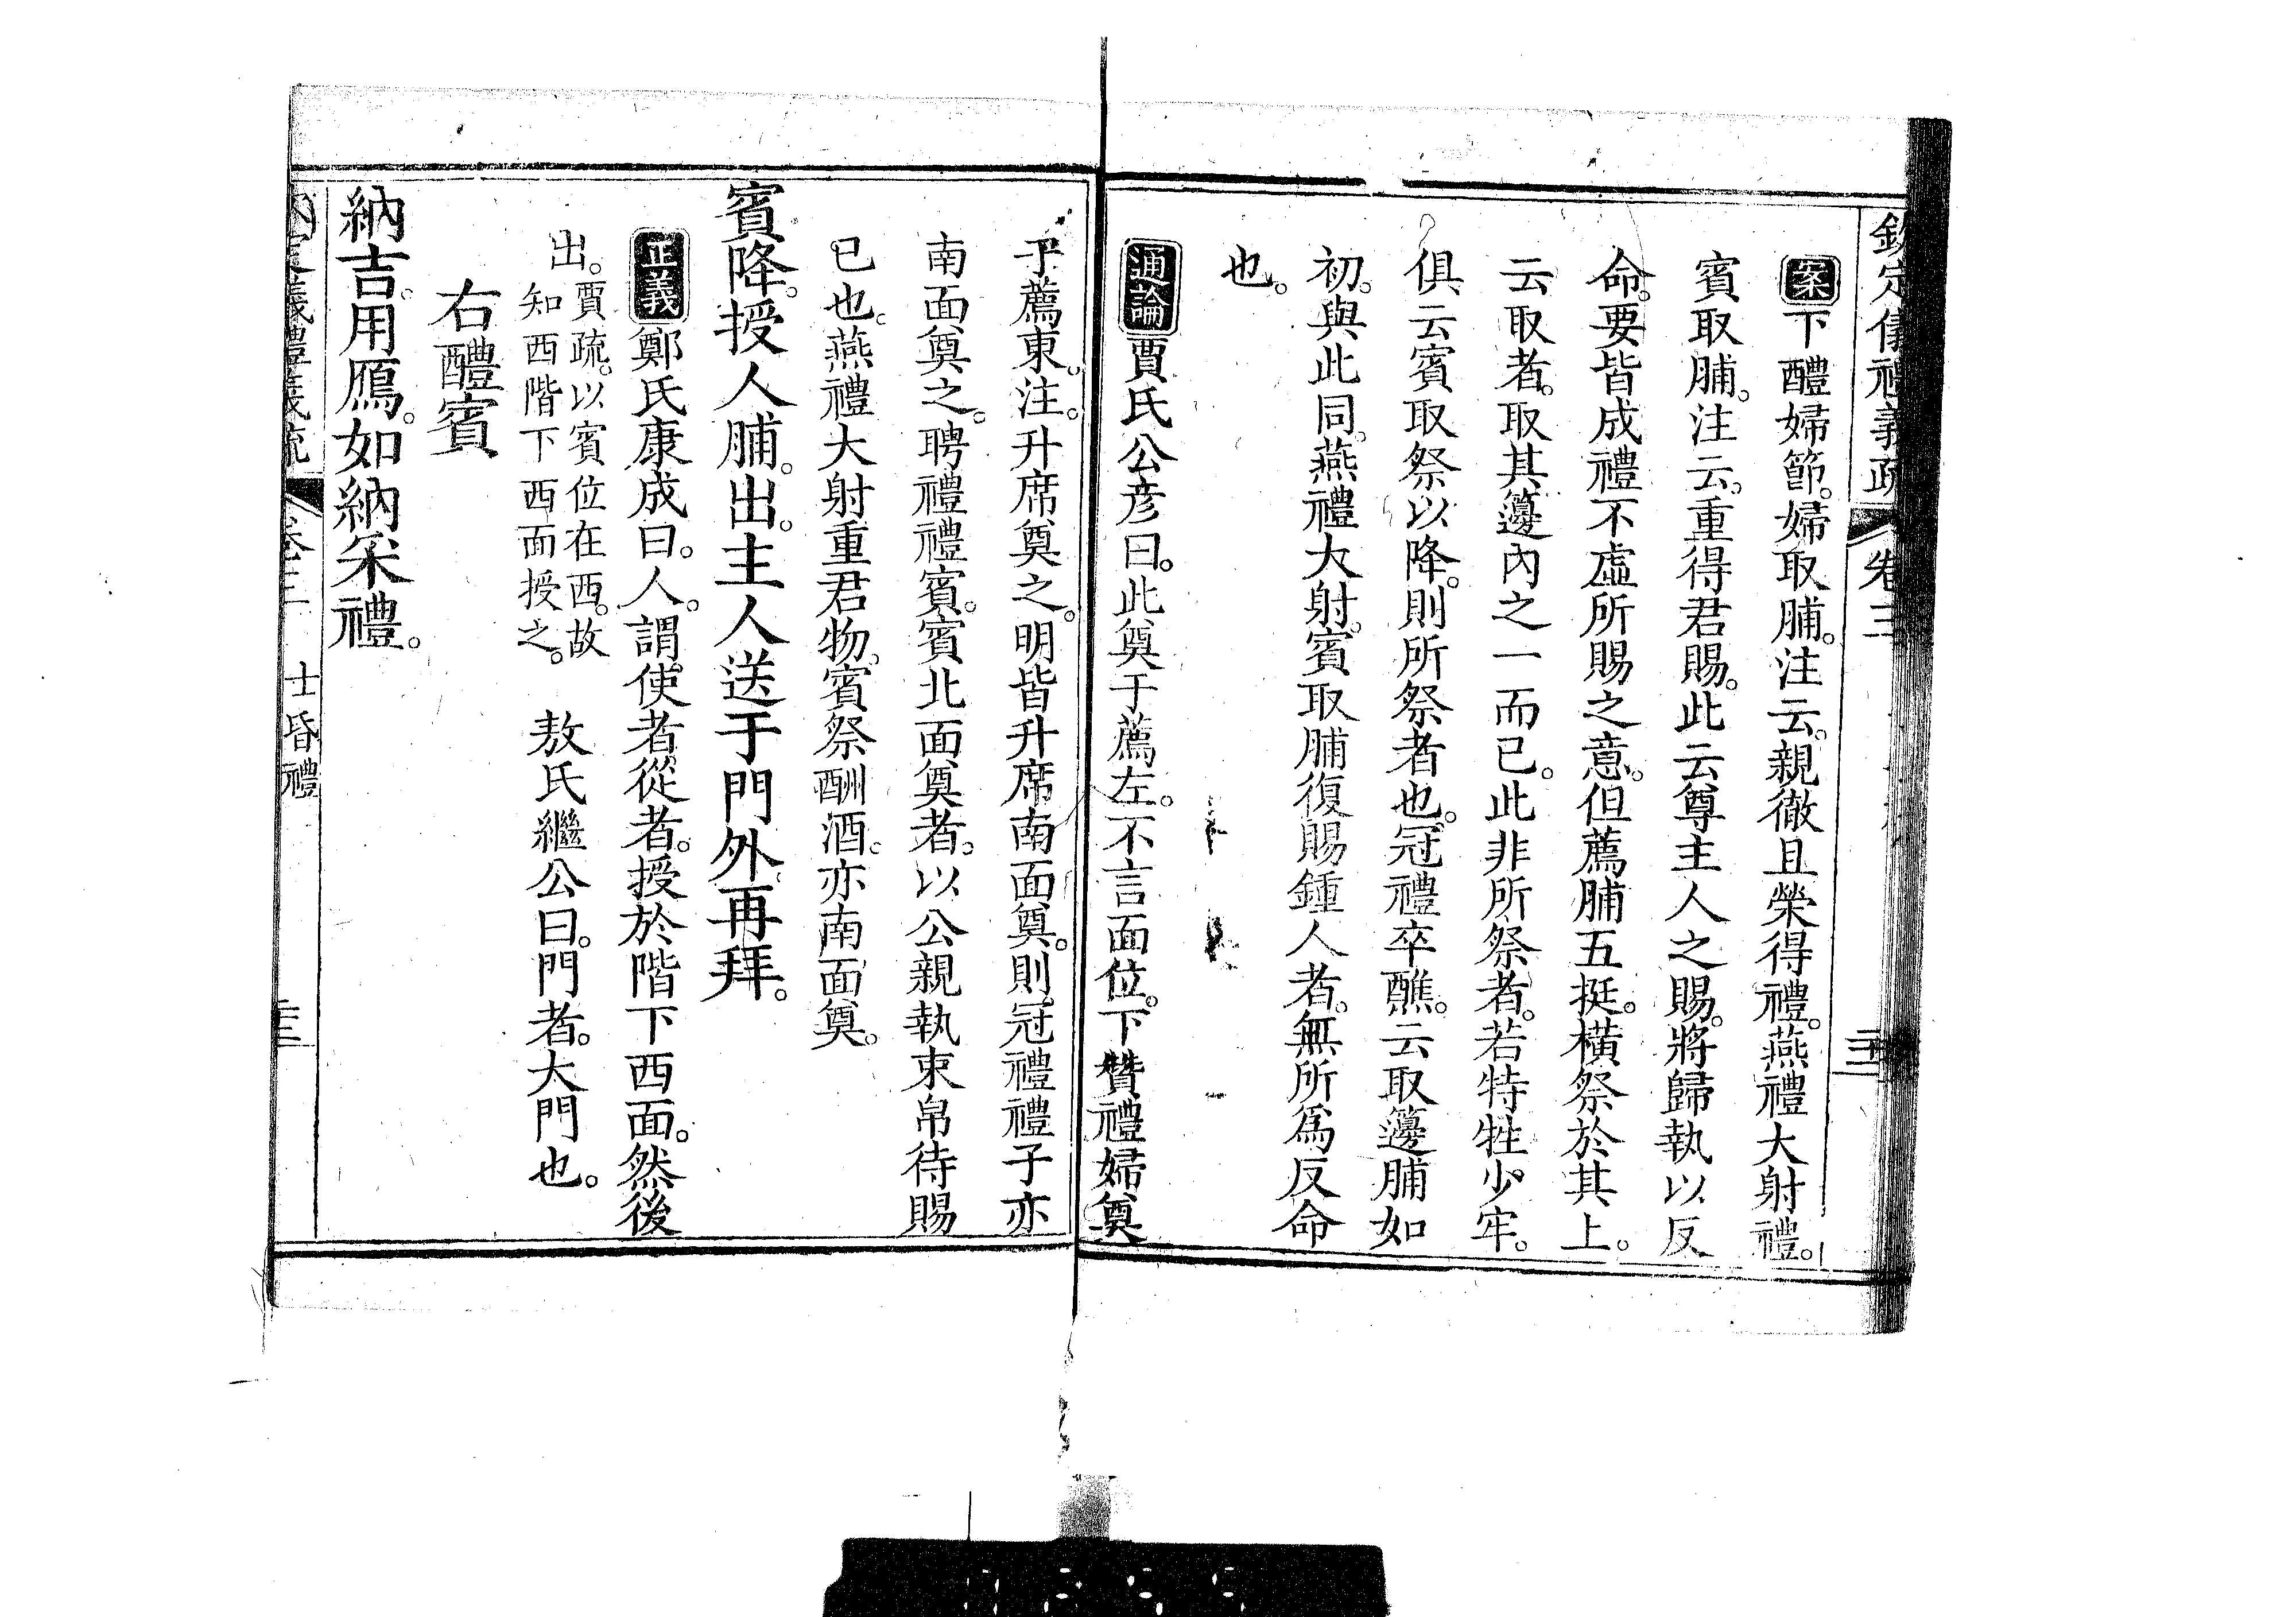 欽定儀禮義疏 卷三
案下醴婦節。婦取脯。注云。親徹且榮得禮。燕禮大射禮。
賓取脯。注云。重得君賜。此云尊主人之賜。將歸執以反
命。要皆成禮不虛所賜之意。但薦脯五挺。橫祭於其上。
云取者。取其籩內之一而已。此非所祭者。若特牲少牢。
俱云賓取祭以降。則所祭者也。冠禮卒醮。云取籩脯如
初。與此同。燕禮大射。賓取脯復賜鍾人者。無所爲反命
也。
通論賈氏公彥曰。此奠于薦左。不言面位。下贊禮婦奠
于薦東。注。升席奠之。明皆升席南面奠。則冠禮禮子亦
南面奠之。聘禮禮賓。賓北面奠者。以公親執束帛待賜
已也。燕禮大射重君物。賓祭酬酒。亦南面奠。
賓降。授人脯。出。主人送于門外再拜。
正義鄭氏康成曰。人。謂使者從者。授於階下西面。然後
出。賈疏。以賓位在西。故
知西階下西面授之。 敖氏繼公曰。門者。大門也。
右醴賓
納吉用鴈。如納采禮。
義禮義疏 卷三 士昏禮